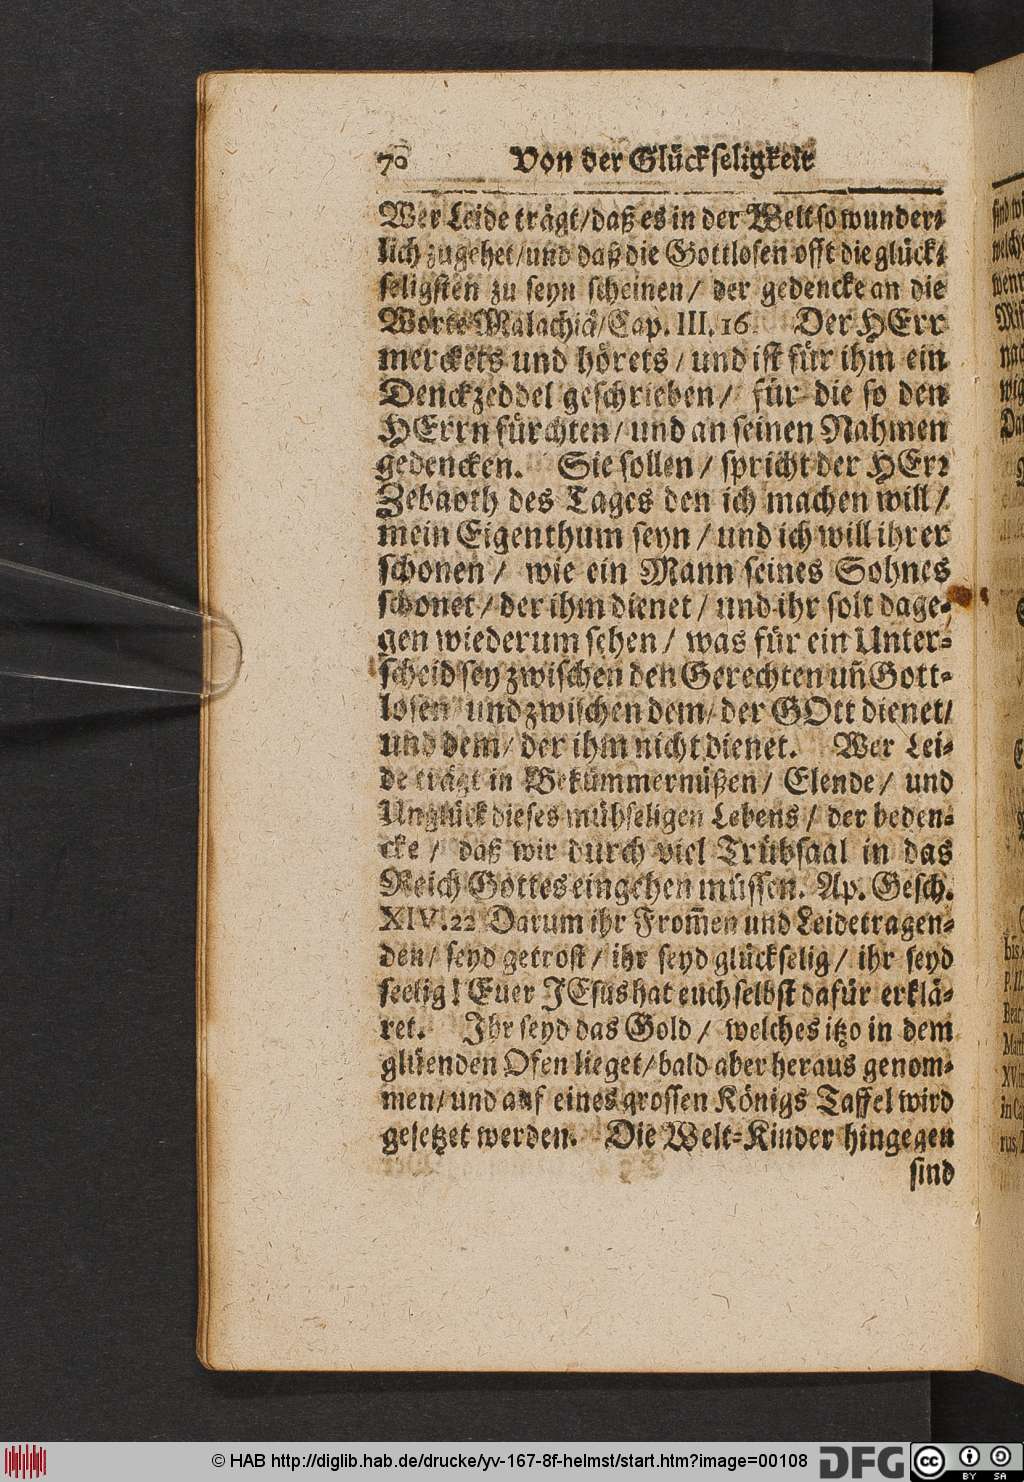 70 Von der Glückseligkeit
Wer Leide trägt/daß es in der Welt so wunder-
lich zugehet/und daß die Gottlosen offt die glück-
seligsten zu seyn scheinen/ der gedencke an die
Worte Malachiä/Cap. III. 16. Der HErr
merckets und hörets/und ist für ihm ein
Denckzeddel geschrieben/ für die so den
HErrn fürchten/und an seinen Nahmen
gedencken. Sie sollen/ spricht der HErr
Zebaoth des Tages den ich machen will/
mein Eigenthum seyn/und ich will ihrer
schonen/ wie ein Mann seines Sohnes
schonet/der ihm dienet/und ihr solt dage-
gen wiederum sehen/ was für ein Unter-
scheid sey zwischen den Gerechten uñ Gott-
losen und zwischen dem/der GOtt dienet/
und dem/der ihm nicht dienet. Wer Lei-
de trägt in Bekümmernüßen/ Elende/ und
Unglück dieses mühseligen Lebens/ der beden-
cke/ daß wir durch viel Trübsaal in das
Reich Gottes eingehen müssen. Ap. Gesch.
XIV.22 Darum ihr From̃en und Leidetragen-
den/ seyd getrost/ ihr seyd glückselig/ ihr seyd
seelig! Euer JEsus hat euch selbst dafür erklä-
ret. Ihr seyd das Gold/ welches itzo in dem
glüenden Ofen lieget/bald aber heraus genom-
men/und auf eines grossen Königs Taffel wird
gesetzet werden. Die Welt-Kinder hingegen
sind
© HAB http://diglib.hab.de/drucke/yv-167-8f-helmst/start.htm?image=00108
DFG
cc BY SA